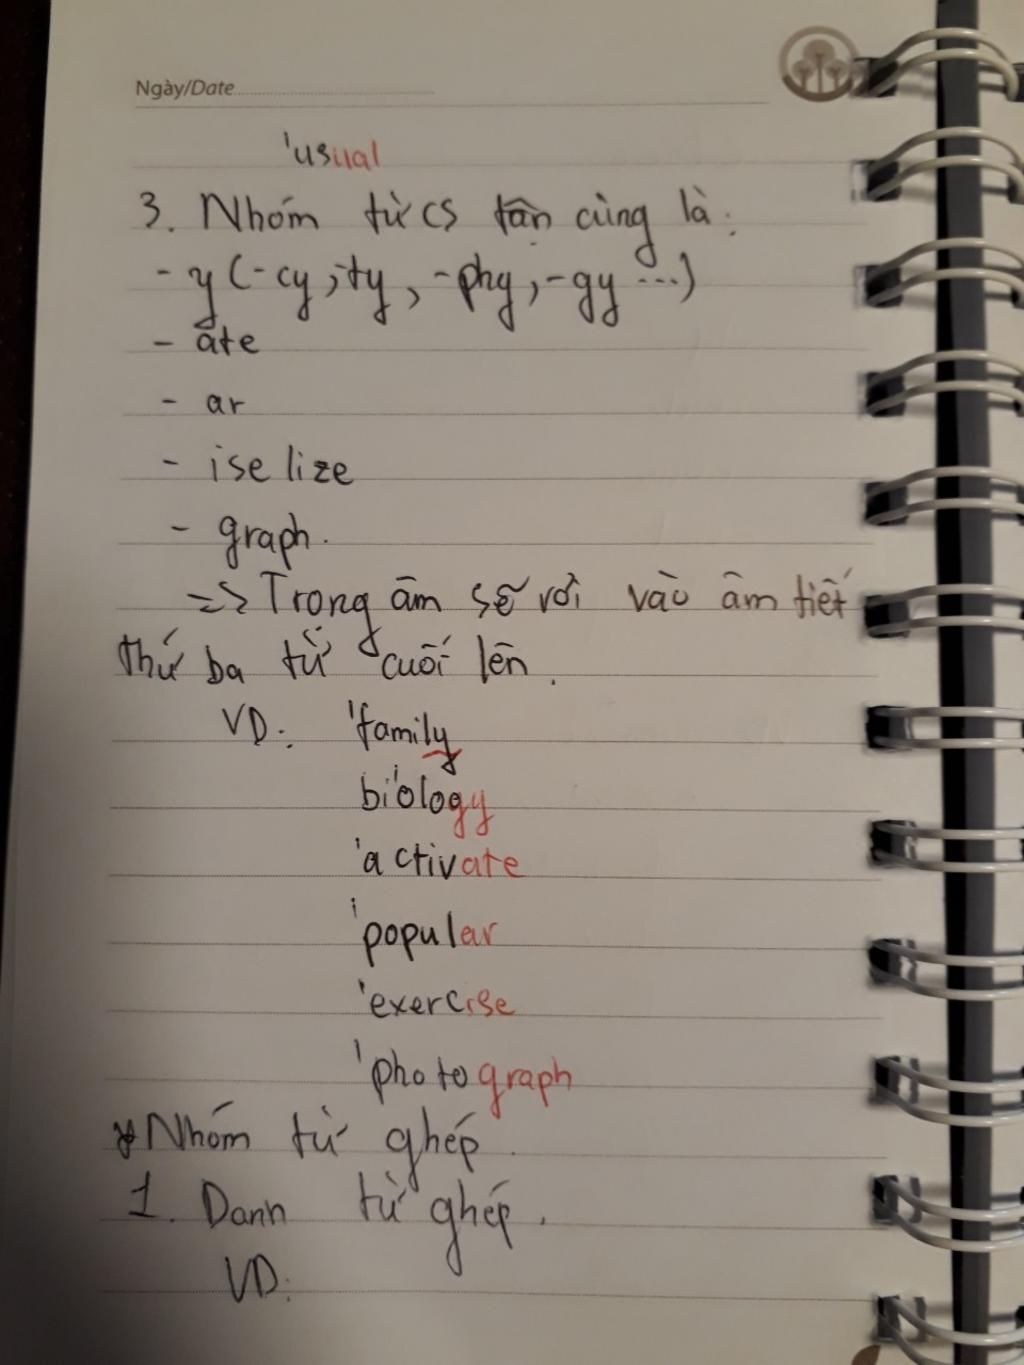 Ngày/Date
'usual
3. Nhóm từ cs tận cùng là:
- y (-cy, -ty, -phy, -gy ...)
- ate
- ar
- ise lize
- graph.
=> Trọng âm sẽ rơi vào âm tiết
thứ ba từ cuối lên.
VD: 'family
bi'ology
'activate
'popular
'exercise
'photograph
* Nhóm từ ghép.
1. Danh từ ghép.
VD: